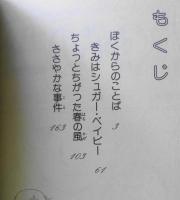 もくじ
ぼくからのことば 3
きみはシュガー・ベイビー 61
ちょっとちがった春の風 103
ささやかな事件 163